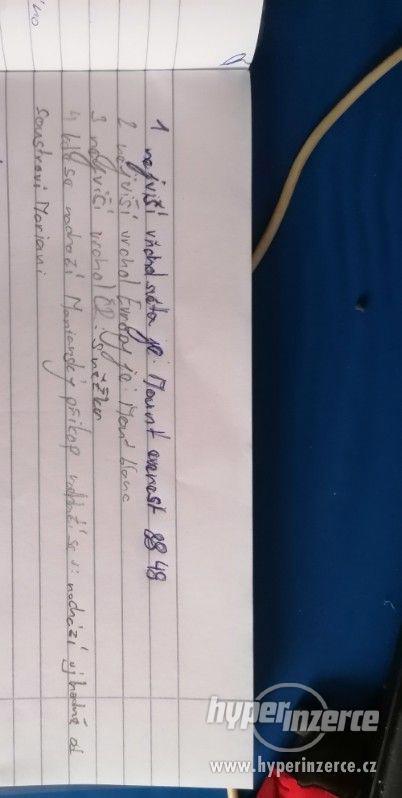 1 nejviší vrchol sveta je: Mount everest 8848
2 nejviší vrchol Evropy je: Mont blanc
3 nejviší vrchol ČR: Sněžka
4 kde se nachazí Marianský příkop nachází se v: nachází vjhodně od
Soustroví Mariani
hyperinzerce
www.hyperinzerce.cz